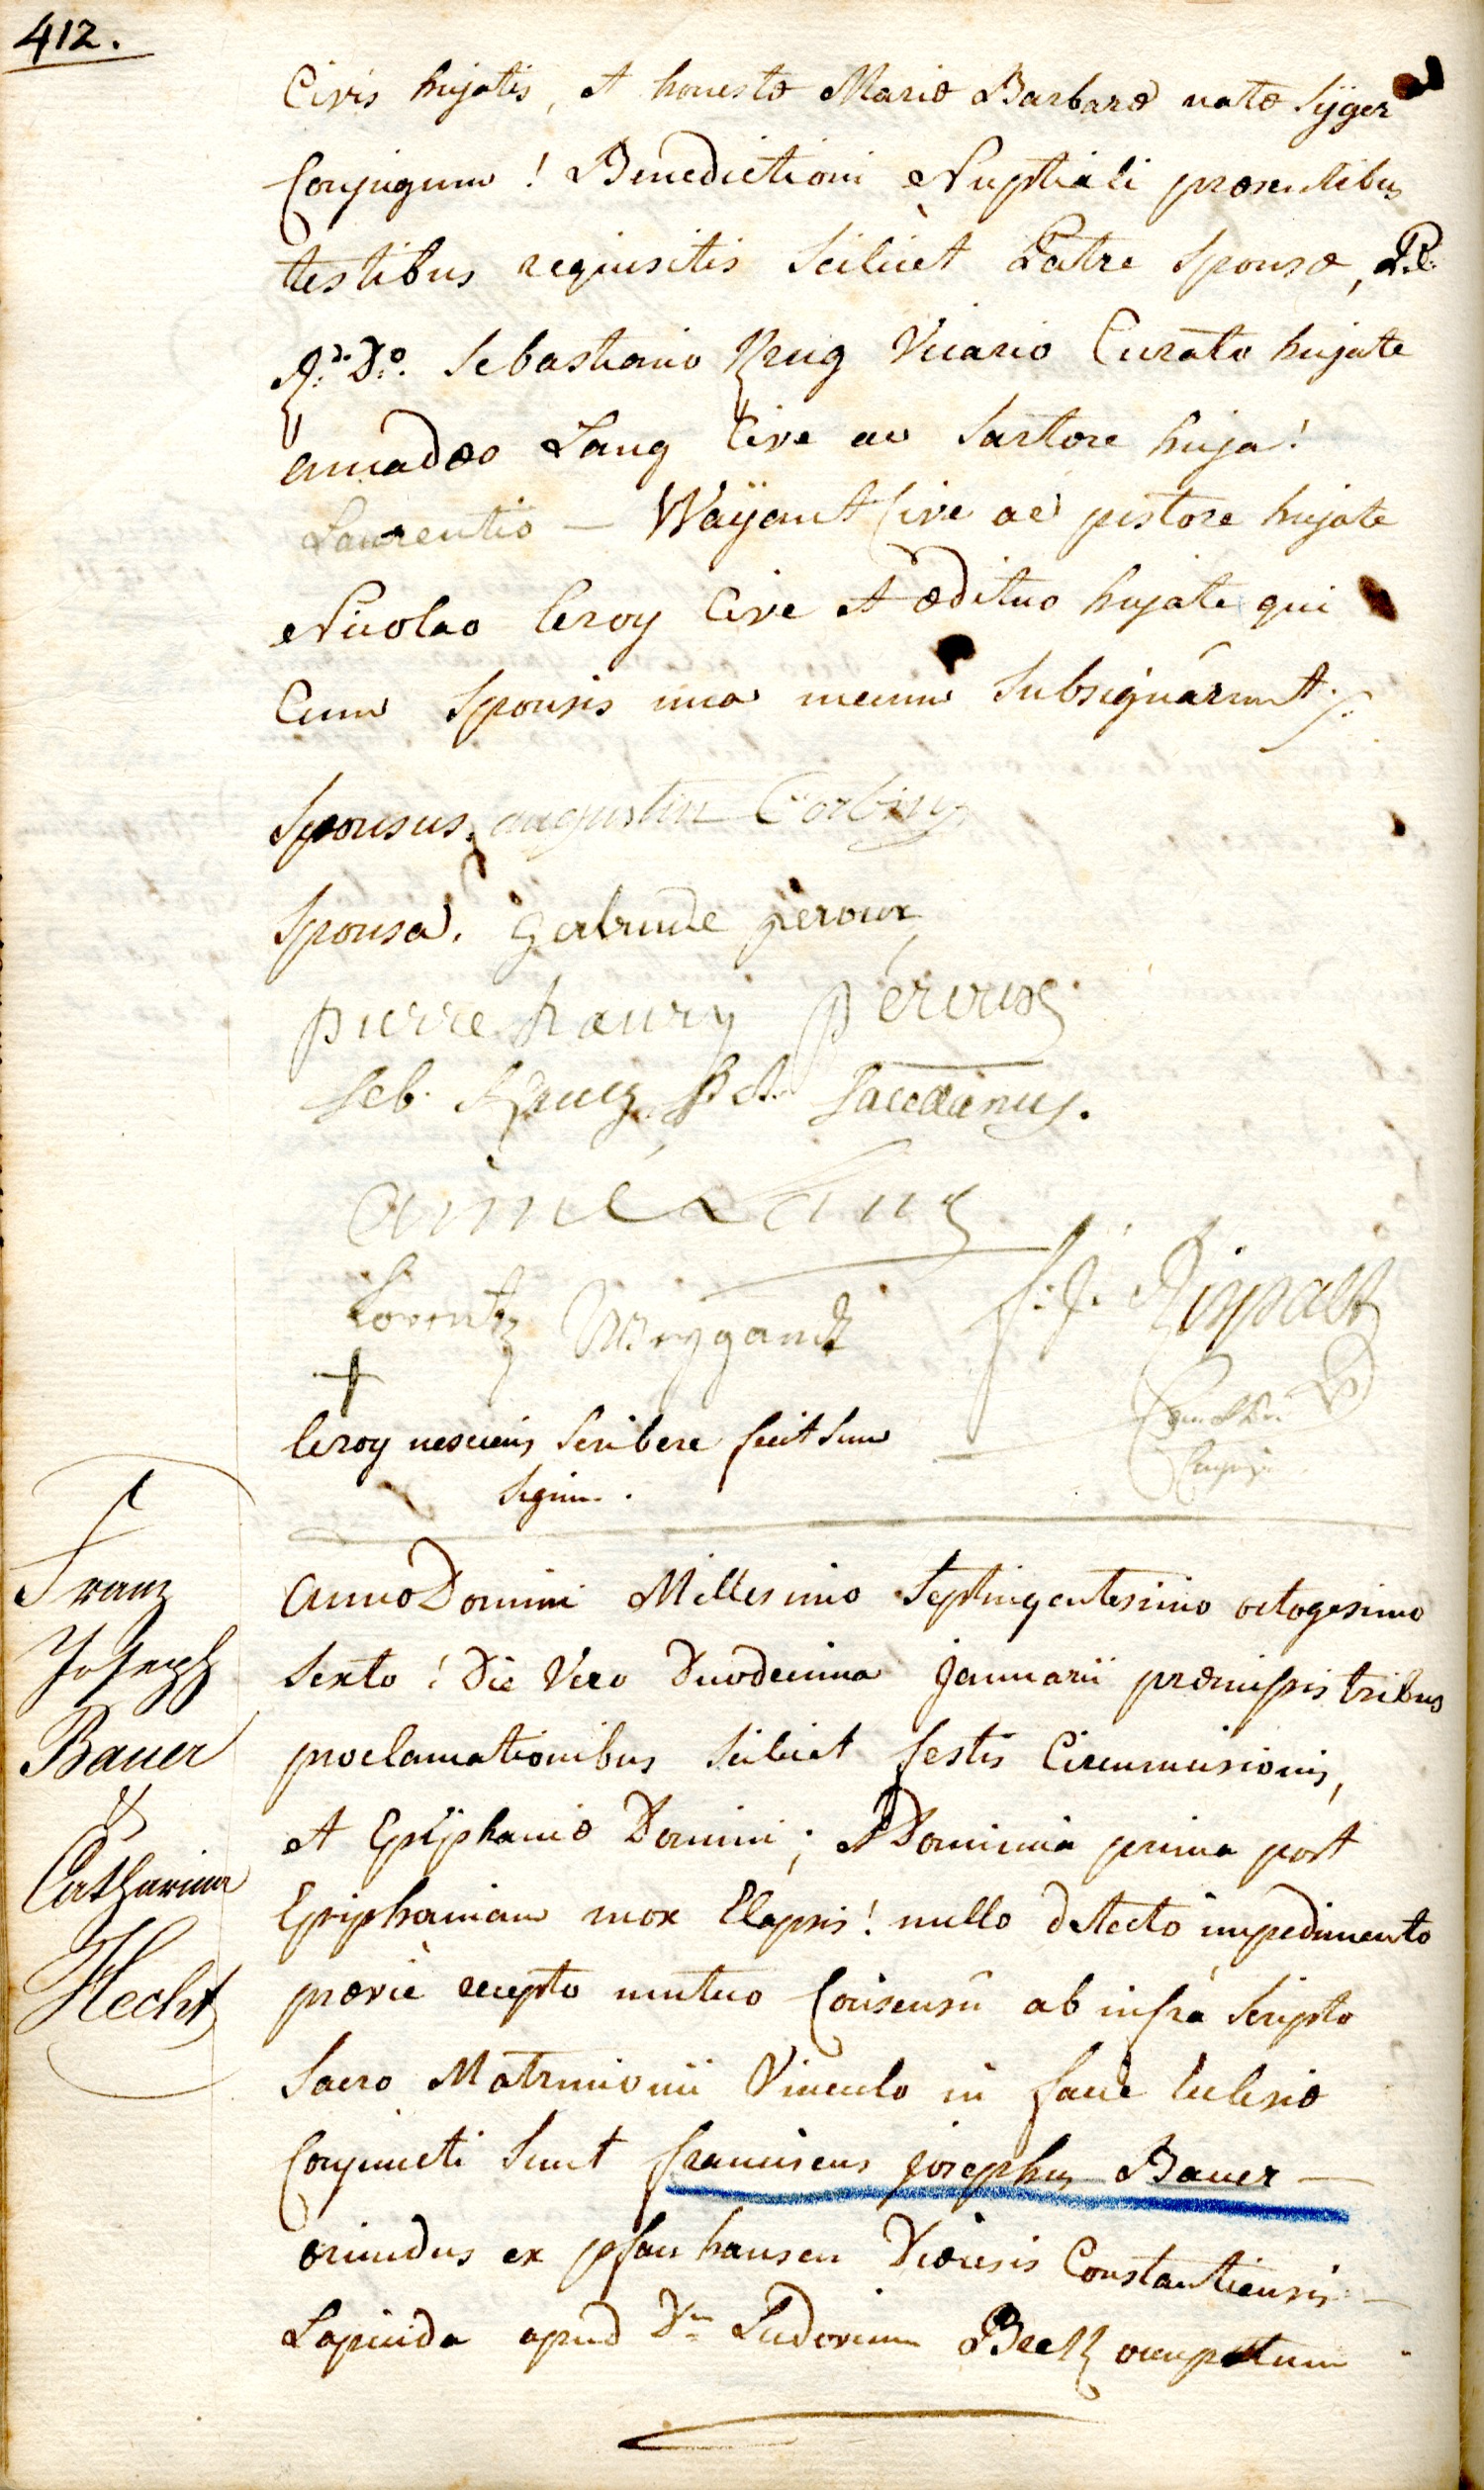 412.
Civis hujatis, et honestæ Mariæ Barbaræ natæ Sÿger
Conjugum! Benedictioni Nuptiali præsentibus
testibus requisitis Scilicet Patre Sponsæ, Pl:
R:d: D:o: Sebastiano Krug Vicario Curato hujate
amadæo Lang Cive ac Sartore huja!
Laurentio — Waÿant Cive ac pistore hujate
Nicolao leroy Cive et ædituo hujate qui
Cum Sponsis una mecum Subsignárunt ./.
Sponsus. augustin Corbiny
Sponsa. gertrude peroux
pierre hanry peroux
Seb. Krug p.t. Sacellanus.
aimé Lang
Lorentz Weygandt
f: J: Rispalt
+
leroy nesciens Scribere fecit Suum
Signum.
Franz
Joseph
Bauer
&
Catharina
Hecht
Anno Domini Millesimo Septingentesimo octogesimo
Sexto! Die Vero Duodecima Januarii præmissis tribus
proclamationibus Scilicet festis Circumcisionis,
et Epiphaniæ Domini; et Dominica prima post
Epiphaniam mox Elapsis! nullo detecto impedimento
prævie recepto mutuo Consensu ab infra Scripto
Sacro Matrimonii Vinculo in facie Ecclesiæ
Conjuncti Sunt franciscus josephus Bauer —
oriundus ex pfauhausen Diœcesis Constantiensis —
Lapicida apud D:m Ludovicum Beck occupatum